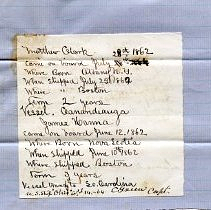 Matthew Clark
Came on board July 29th 1862
Where Born Albany N.Y.
When shipped July 29th 1862
Where " Boston
Term 2 years
Vessel, Canandaigua
James Hanna
Came on board June 12, 1862
Where Born Nova Scotia
When shipped June 10th 1862
Where shipped Boston
Term 3 years
Vessel
U.S.S. Oct 14-64 Capt.